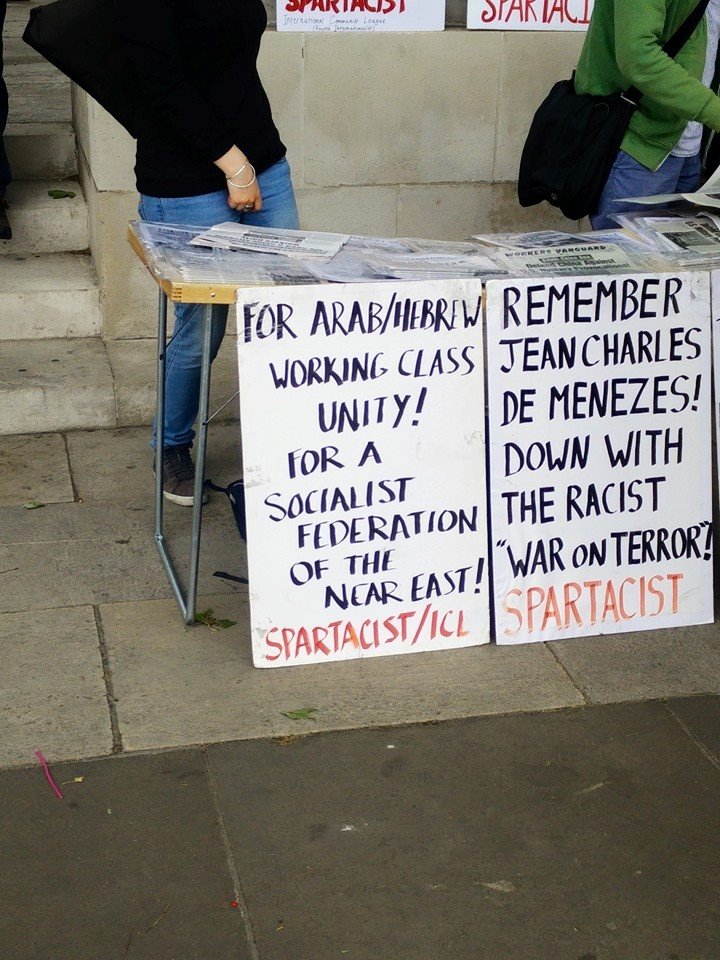 SPARTACIST
International Communist League
(Fourth Internationalist)
SPARTACI
WORKERS VANGUARD
Defend China Against
FOR ARAB/HEBREW
WORKING CLASS
UNITY!
FOR A
SOCIALIST
FEDERATION
OF THE
NEAR EAST!
SPARTACIST/ICL
REMEMBER
JEAN CHARLES
DE MENEZES!
DOWN WITH
THE RACIST
"WAR ON TERROR"!
SPARTACIST